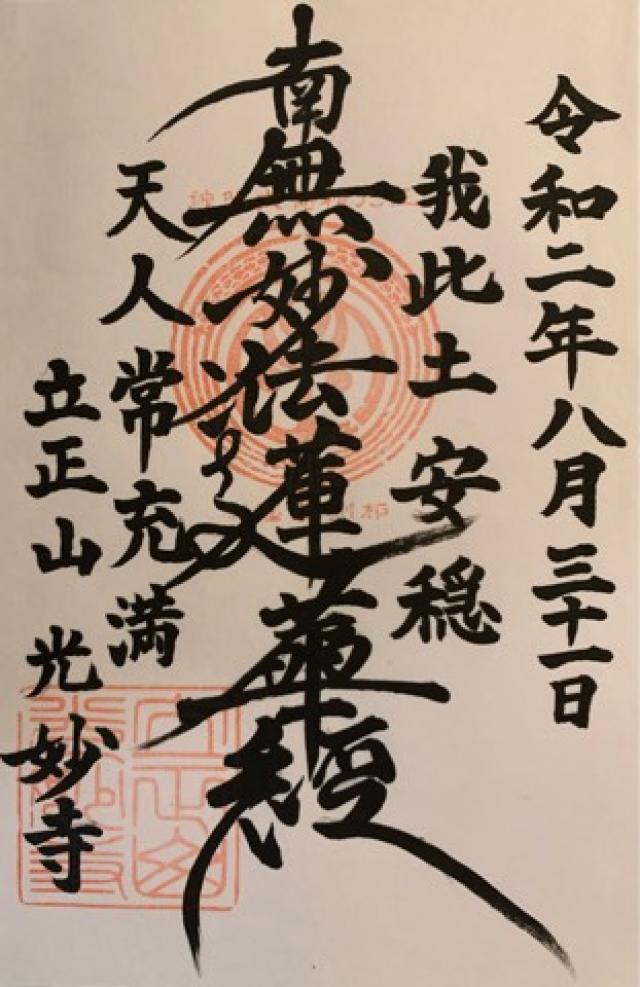 令和二年八月三十一日
我此土安穏
南無妙法蓮華経
天人常充満
立正山 光妙寺